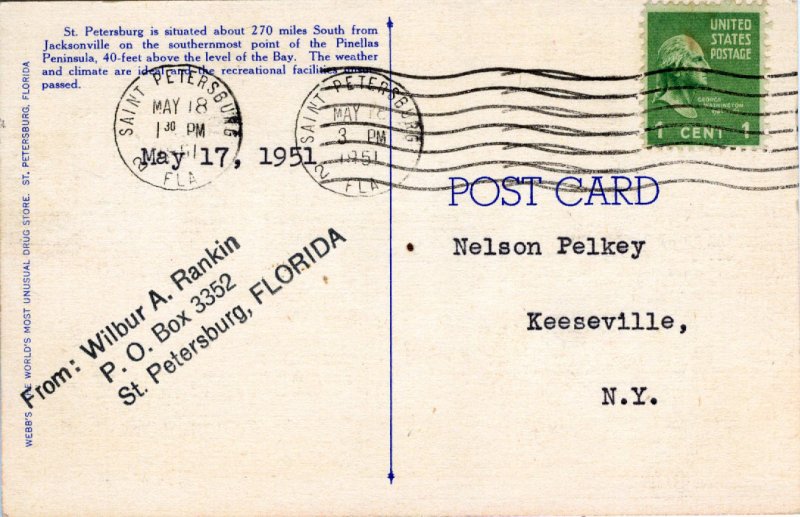 St. Petersburg is situated about 270 miles South from
Jacksonville on the southernmost point of the Pinellas
Peninsula, 40-feet above the level of the Bay. The weather
and climate are ideal and the recreational facilities
passed.
UNITED
STATES
POSTAGE
GEORGE
WASHINGTON
1 CENT 1
SAINT PETERSBURG
MAY 18
1 30 PM
1951
2 FLA
SAINT PETERSBURG
MAY 18
3 PM
1951
2 FLA
May 17, 1951
POST CARD
Nelson Pelkey
Keeseville,
N.Y.
From: Wilbur A. Rankin
P. O. Box 3352
St. Petersburg, FLORIDA
WEBB'S THE WORLD'S MOST UNUSUAL DRUG STORE. ST. PETERSBURG, FLORIDA